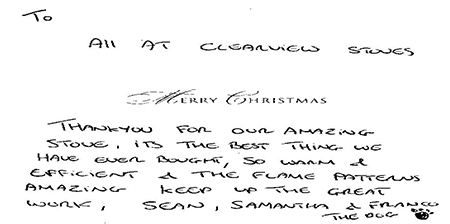 To
All at Clearview Stoves
Merry Christmas
Thankyou for our amazing
stove, its the best thing we
have ever bought, so warm &
efficient & the flame patterns
amazing keep up the great
work, Sean, Samantha & Franco
the dog